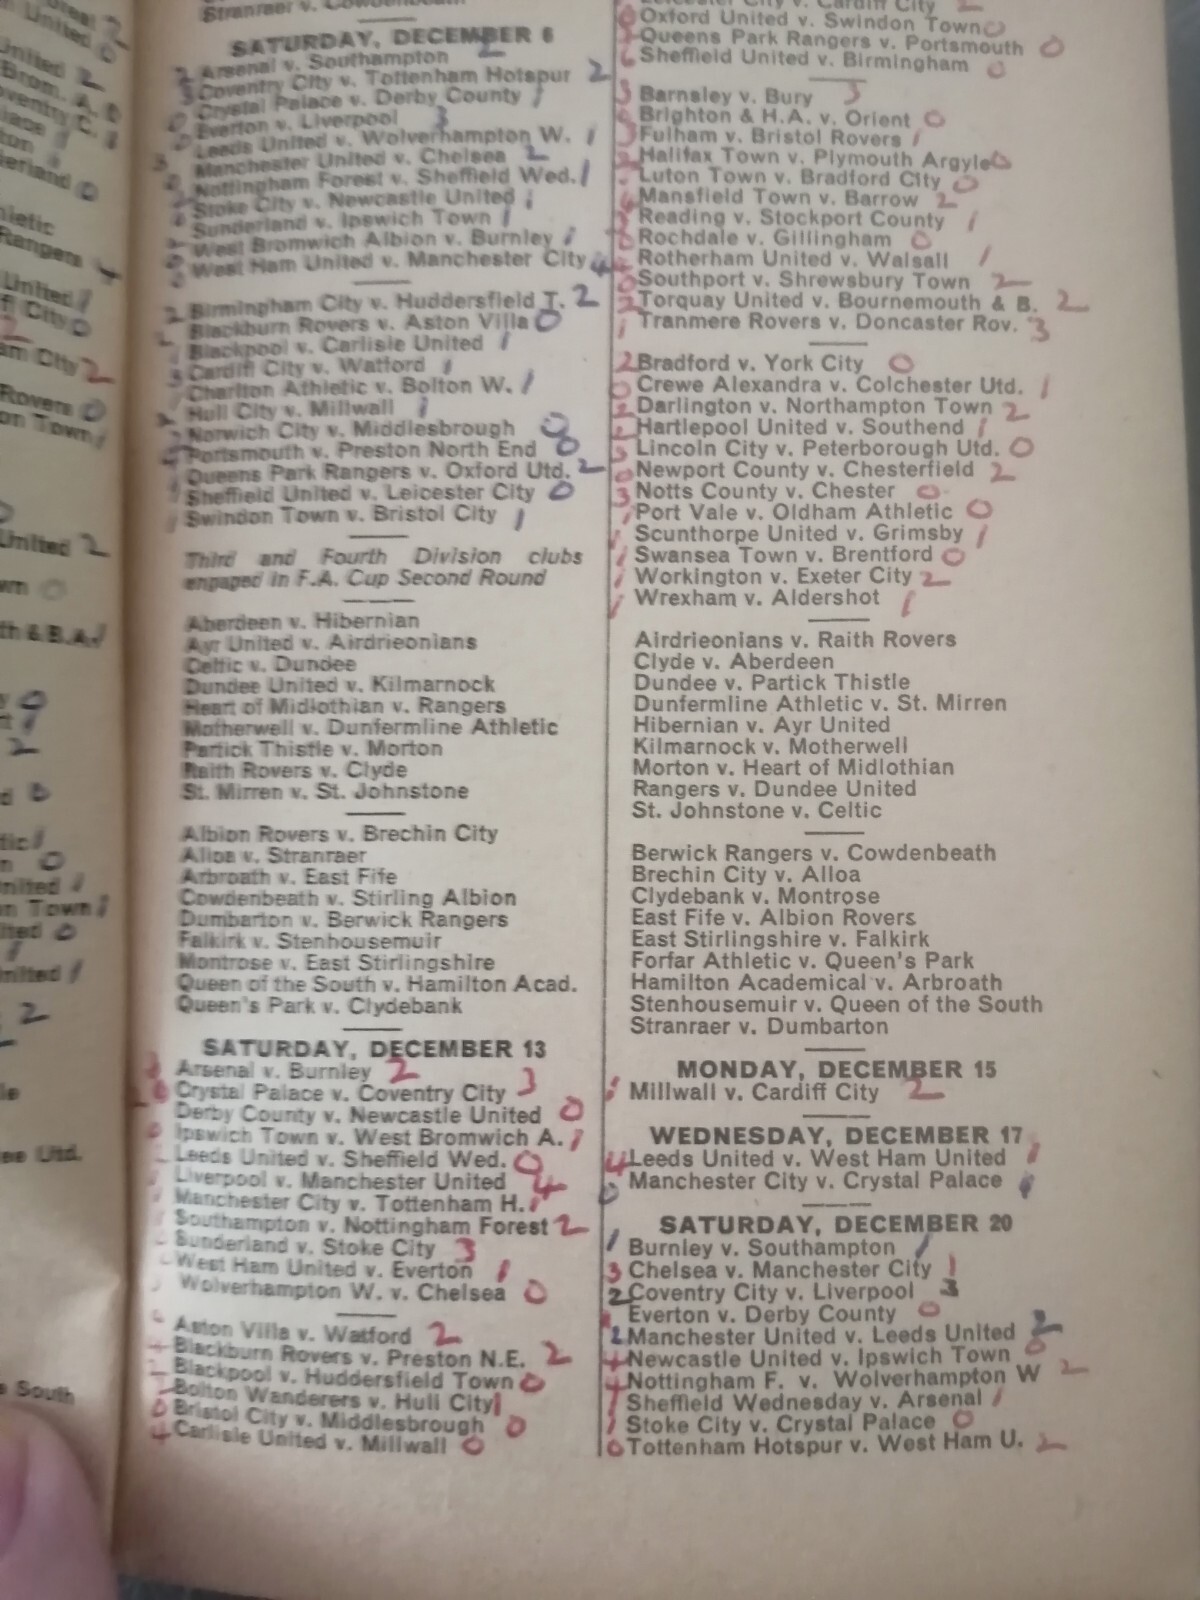 Stranraer v. Cowdenbeath
SATURDAY, DECEMBER 6
2 Arsenal v. Southampton 2
3 Coventry City v. Tottenham Hotspur 2
Crystal Palace v. Derby County 1
0 Everton v. Liverpool 3
Leeds United v. Wolverhampton W. 1
3 Manchester United v. Chelsea 2
0 Nottingham Forest v. Sheffield Wed. 1
Stoke City v. Newcastle United 1
Sunderland v. Ipswich Town 1
West Bromwich Albion v. Burnley 1
0 West Ham United v. Manchester City 4
2 Birmingham City v. Huddersfield T. 2
2 Blackburn Rovers v. Aston Villa 0
1 Blackpool v. Carlisle United 1
3 Cardiff City v. Watford 1
1 Charlton Athletic v. Bolton W. 1
2 Hull City v. Millwall 1
Norwich City v. Middlesbrough 0
Portsmouth v. Preston North End 0
Queens Park Rangers v. Oxford Utd. 2
1 Sheffield United v. Leicester City 0
1 Swindon Town v. Bristol City 1
Third and Fourth Division clubs
engaged in F.A. Cup Second Round
Aberdeen v. Hibernian
Ayr United v. Airdrieonians
Celtic v. Dundee
Dundee United v. Kilmarnock
Heart of Midlothian v. Rangers
Motherwell v. Dunfermline Athletic
Partick Thistle v. Morton
Raith Rovers v. Clyde
St. Mirren v. St. Johnstone
Albion Rovers v. Brechin City
Alloa v. Stranraer
Arbroath v. East Fife
Cowdenbeath v. Stirling Albion
Dumbarton v. Berwick Rangers
Falkirk v. Stenhousemuir
Montrose v. East Stirlingshire
Queen of the South v. Hamilton Acad.
Queen's Park v. Clydebank
SATURDAY, DECEMBER 13
Arsenal v. Burnley 2
0 Crystal Palace v. Coventry City 3
Derby County v. Newcastle United 0
0 Ipswich Town v. West Bromwich A. 1
Leeds United v. Sheffield Wed. 0
1 Liverpool v. Manchester United 4
1 Manchester City v. Tottenham H. 1
1 Southampton v. Nottingham Forest 2
Sunderland v. Stoke City 3
West Ham United v. Everton 1
Wolverhampton W. v. Chelsea 0
Aston Villa v. Watford 2
4 Blackburn Rovers v. Preston N.E. 2
2 Blackpool v. Huddersfield Town 0
2 Bolton Wanderers v. Hull City 1
0 Bristol City v. Middlesbrough 0
4 Carlisle United v. Millwall 0
Cardiff City 2
0 Oxford United v. Swindon Town 0
Queens Park Rangers v. Portsmouth 0
6 Sheffield United v. Birmingham 0
3 Barnsley v. Bury 3
Brighton & H.A. v. Orient 0
3 Fulham v. Bristol Rovers 1
2 Halifax Town v. Plymouth Argyle 0
Luton Town v. Bradford City 0
4 Mansfield Town v. Barrow 2
Reading v. Stockport County 1
Rochdale v. Gillingham 0
4 Rotherham United v. Walsall 1
0 Southport v. Shrewsbury Town 2
2 Torquay United v. Bournemouth & B. 2
1 Tranmere Rovers v. Doncaster Rov. 3
2 Bradford v. York City 0
0 Crewe Alexandra v. Colchester Utd. 1
2 Darlington v. Northampton Town 2
2 Hartlepool United v. Southend 1
3 Lincoln City v. Peterborough Utd. 0
0 Newport County v. Chesterfield 2
3 Notts County v. Chester 0
1 Port Vale v. Oldham Athletic 0
1 Scunthorpe United v. Grimsby 1
1 Swansea Town v. Brentford 0
1 Workington v. Exeter City 2
1 Wrexham v. Aldershot 1
Airdrieonians v. Raith Rovers
Clyde v. Aberdeen
Dundee v. Partick Thistle
Dunfermline Athletic v. St. Mirren
Hibernian v. Ayr United
Kilmarnock v. Motherwell
Morton v. Heart of Midlothian
Rangers v. Dundee United
St. Johnstone v. Celtic
Berwick Rangers v. Cowdenbeath
Brechin City v. Alloa
Clydebank v. Montrose
East Fife v. Albion Rovers
East Stirlingshire v. Falkirk
Forfar Athletic v. Queen's Park
Hamilton Academical v. Arbroath
Stenhousemuir v. Queen of the South
Stranraer v. Dumbarton
MONDAY, DECEMBER 15
1 Millwall v. Cardiff City 2
WEDNESDAY, DECEMBER 17
4 Leeds United v. West Ham United 1
0 Manchester City v. Crystal Palace 1
SATURDAY, DECEMBER 20
1 Burnley v. Southampton 1
3 Chelsea v. Manchester City 1
2 Coventry City v. Liverpool 3
Everton v. Derby County 0
2 Manchester United v. Leeds United 2
4 Newcastle United v. Ipswich Town 0
4 Nottingham F. v. Wolverhampton W 2
1 Sheffield Wednesday v. Arsenal 1
1 Stoke City v. Crystal Palace 0
0 Tottenham Hotspur v. West Ham U. 2